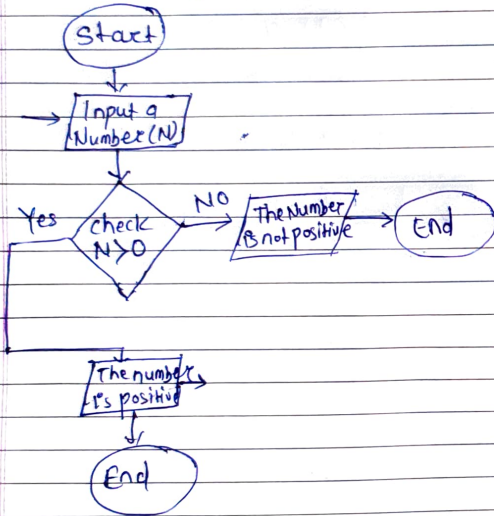 Start
Input a
Number (N)
Yes
check
N>0
NO
The Number
is not positive
End
The number
is positive
End